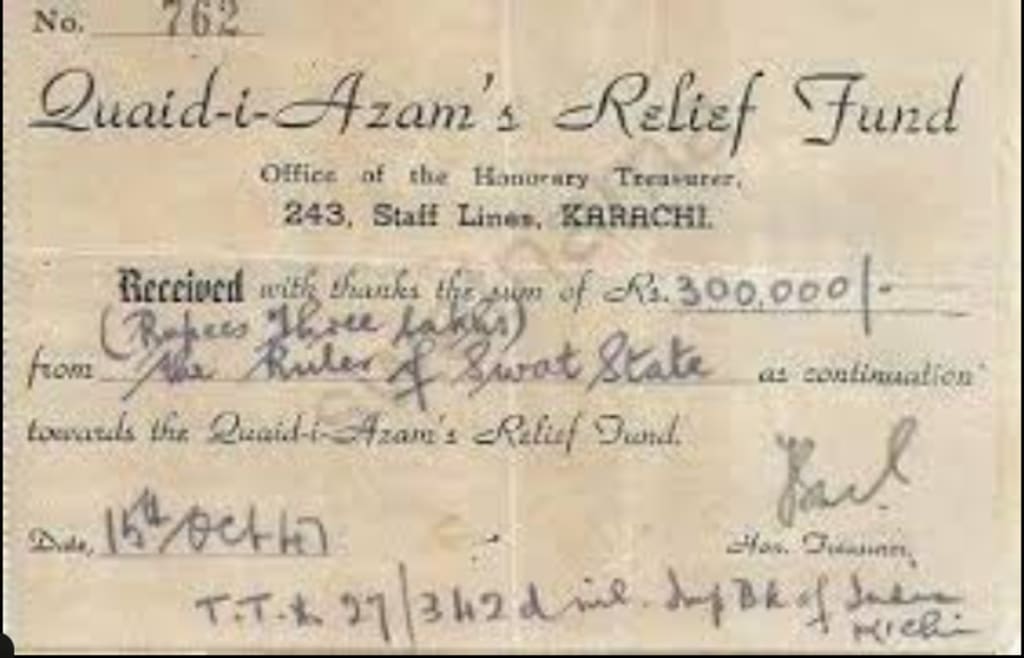 No. 762
Quaid-i-Azam's Relief Fund
Office of the Honorary Treasurer,
243, Staff Lines, KARACHI.
Received with thanks the sum of Rs. 300,000/-
(Rupees three lakhs)
from the Ruler of Swat State as continuation
towards the Quaid-i-Azam's Relief Fund.
Date, 15th Oct 47
Hon. Treasurer,
T.T. 27/342 Imp Bk of India